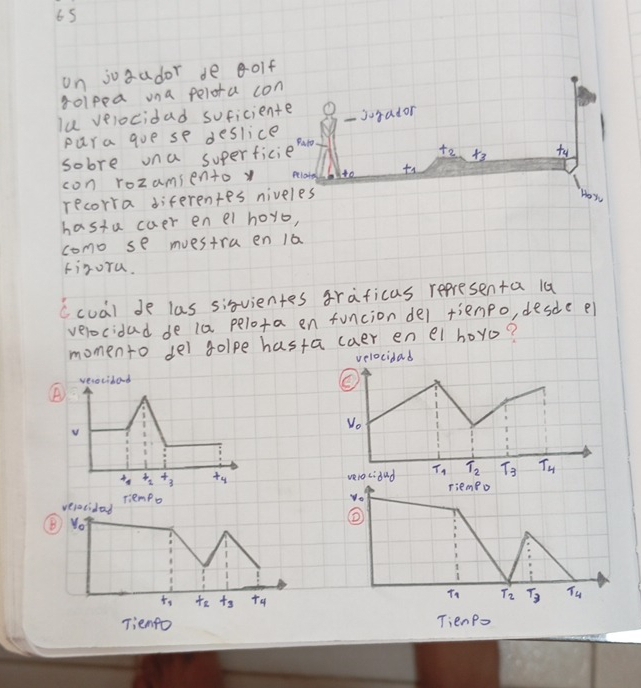 65
un jugador de Golf
golpea una pelota con
la velocidad suficiente
para que se deslice
sobre una superficie
con rozamiento y
recorra diferentes niveles
hasta caer en el hoyo,
como se muestra en la
figura.
Jugador
Palo
Pelota
t0
t1
t2
t3
t4
Hoyo
¿cuál de las siguientes gráficas representa la
velocidad de la pelota en funcion del tiempo, desde el
momento del golpe hasta caer en el hoyo?
A
velocidad
v
t1 t2 t3 t4
Tiempo
C
velocidad
Vo
T1 T2 T3 T4
Tiempo
B
velocidad
Vo
t1 t2 t3 t4
Tiempo
D
velocidad
Vo
T1 T2 T3 T4
Tiempo